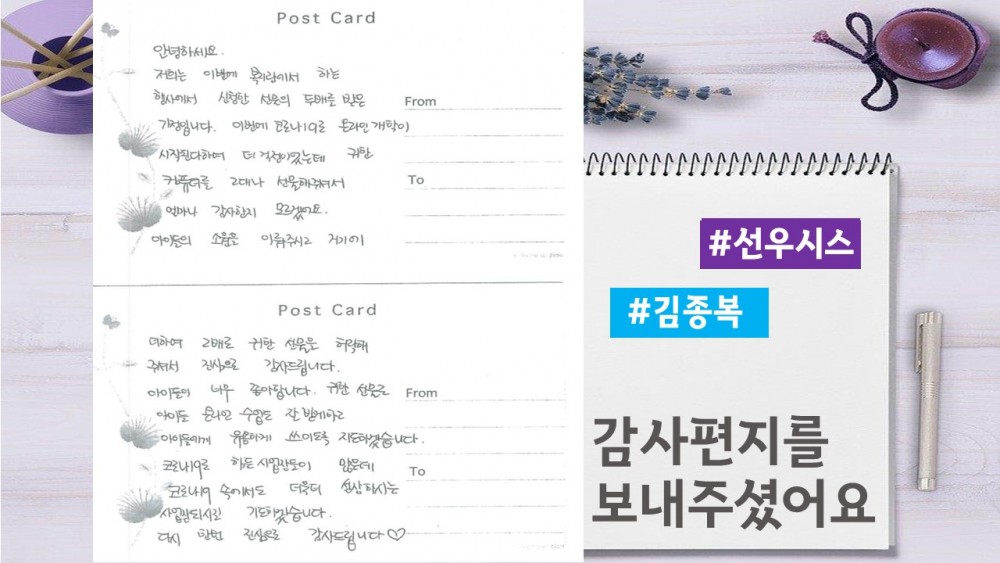 Post Card
안녕하세요.
저희는 이번에 복지관에서 하는
행사에서 신청한 선물의 두배를 받은
From
가정입니다. 이번에 코로나19로 온라인개학이
시작된다하여 더 걱정이었는데 귀한
컴퓨터를 2대나 선물해주셔서
To
얼마나 감사한지 모르겠어요.
아이들의 소원을 이뤄주시고 거기에
Post Card
더하여 2배로 귀한 선물을 허락해
주셔서 진심으로 감사드립니다.
아이들이 너무 좋아합니다. 귀한 선물로
From
아이들 온라인 수업도 잘 받게하고
아이들에게 유용하게 쓰이도록 지도하겠습니다.
코로나19로 힘든 사업장들이 많은데
To
코로나19 속에서도 더욱더 번창하시는
사업장되시길 기도하겠습니다.
다시 한번 진심으로 감사드립니다♡
#선우시스
#김종복
감사편지를
보내주셨어요